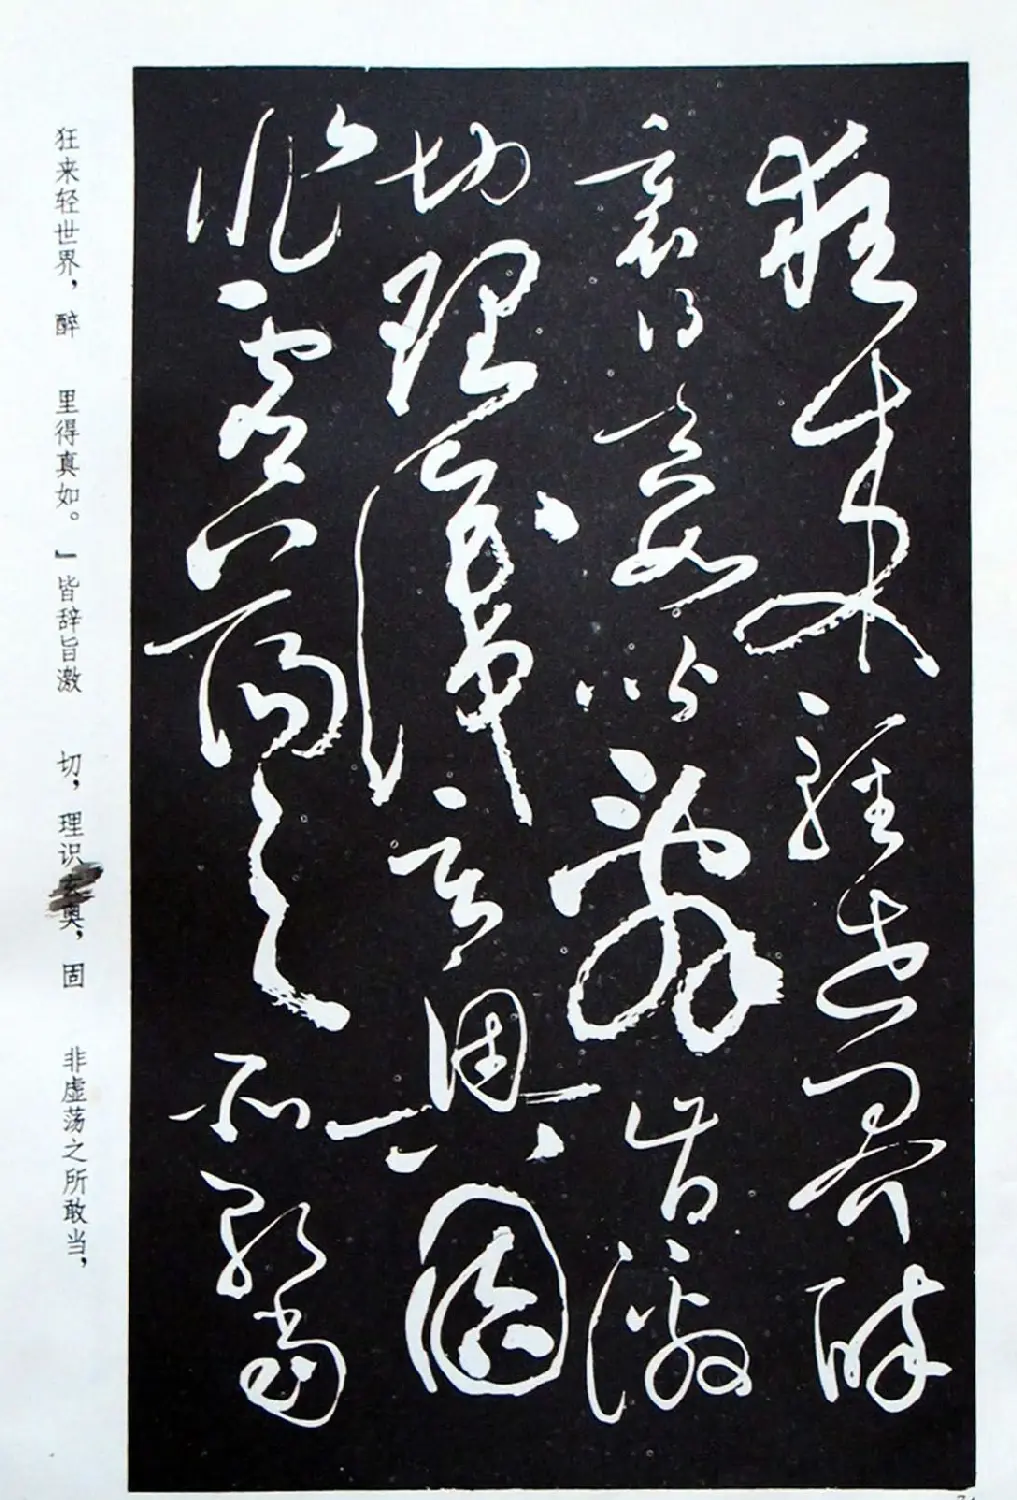 狂來輕世界醉
裏得真如皆辭旨激
切理識玄奧固
非虛蕩之所敢當
狂来轻世界，醉 里得真如。』皆辞旨激 切，理识玄奥，固 非虚荡之所敢当，